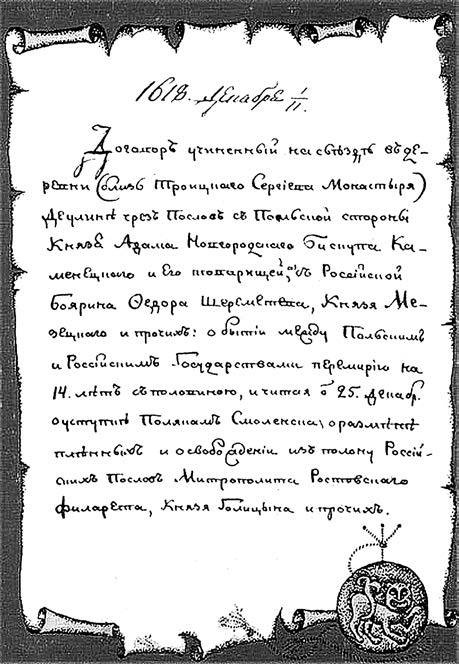 1618. Декабря 1/11.
Договоръ учиненный на съѣздѣ въ де-
ревни (близъ Троицкаго Сергіева Монастыря)
Деулинѣ чрезъ Пословъ съ Польской стороны
Князя Адама Новгородскаго Бискупа Ка-
менецкаго и Его товарищей, а съ Россійской
Боярина Ѳедора Шереметева, Князя Ме-
зецкаго и прочихъ: о бытіи между Польскимъ
и Россійскимъ Государствами перемирію на
14. лѣтъ съ половиною, считая о 25. декабр.
о уступкѣ Полякамъ Смоленска, о размѣнѣ
плѣнныхъ и освобожденіи изъ полону Россій-
скихъ Пословъ Митрополита Ростовскаго
Филарета, Князя Голицына и прочихъ.